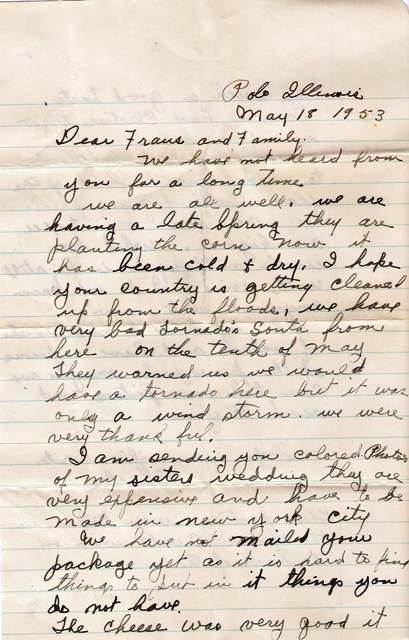 Polo Illinois
May 18 1953
Dear Frans and Family.
We have not heard from
you for a long time.
we are all well. we are
having a late Spring they are
planting the corn now it
has been cold & dry. I hope
your country is getting cleaned
up from the floods, we have
very bad Tornado's South from
here on the tenth of May
They warned us we would
have a tornado here but it was
only a wind storm. we were
very thank ful.
I am sending you colored Photo's
of my sisters wedding they are
very expensive and have to be
made in new york city
We have not mailed your
package yet as it is hard to find
things to put in it things you
do not have.
The cheese was very good it